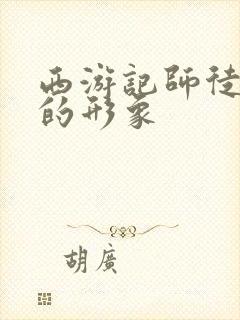 西游記師徒
的形象
胡廣